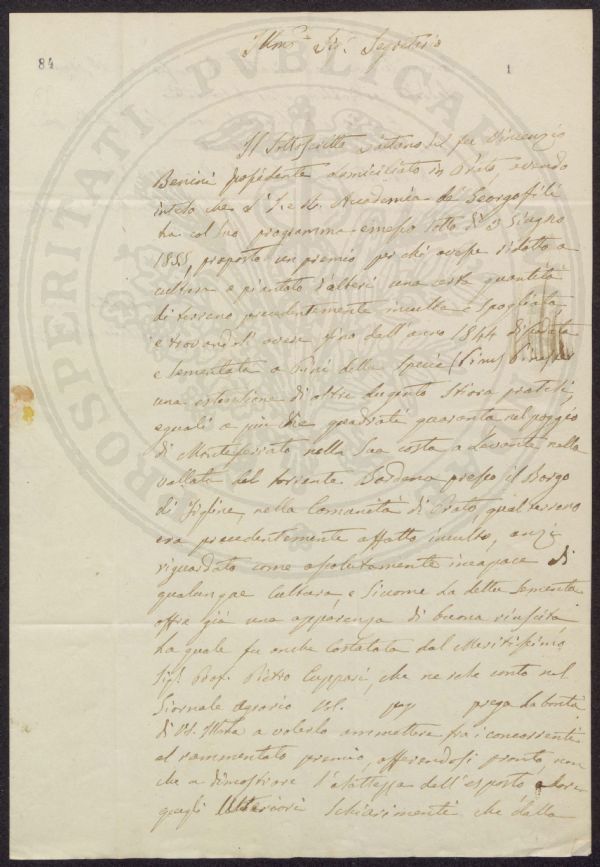 Illmo. Sig. Segretario
84
1
Il Sottoscritto Gaetano del fu Vincenzio
Benini possidente domiciliato in Prato, avendo
inteso che l'I. e R. Accademia de' Georgofili
ha col suo programma emesso sotto dì 3 Giugno
1855, proposto un premio per chi avesse ridotto a
cultura e piantato d'alberi una certa quantità
di terreno precedentemente incolta e spogliata
e trovandosi avere fino dall'anno 1844
e sementata a Pini della specie (Pinus Pinaster
una estensione di oltre dugento Stiora pratesi,
eguali a più che quadrati quaranta nel poggio
di Monteferrato nella sua costa a Levante nella
vallata del torrente Bardena presso il Borgo
di Figline, nella Comunità di Prato, qual terreno
era precedentemente affatto inculto, anzi
riguardato come assolutamente incapace di
qualunque cultura, e siccome la detta sementa
offre già una apparenza di buona riuscita
la quale fu anche constatata dal Meritissimo
Sig. Prof. Pietro Cuppari, che ne rese conto nel
Giornale Agrario Vol. pag prega la bontà
di VS. Illma a volerlo ammettere fra i concorrenti
al rammentato premio, offerendosi pronto, non
che a dimostrare l'esattezza dell'esposto, a dare
quegli ulteriori schiarimenti che dalla
PROSPERITATI PVBLICAE